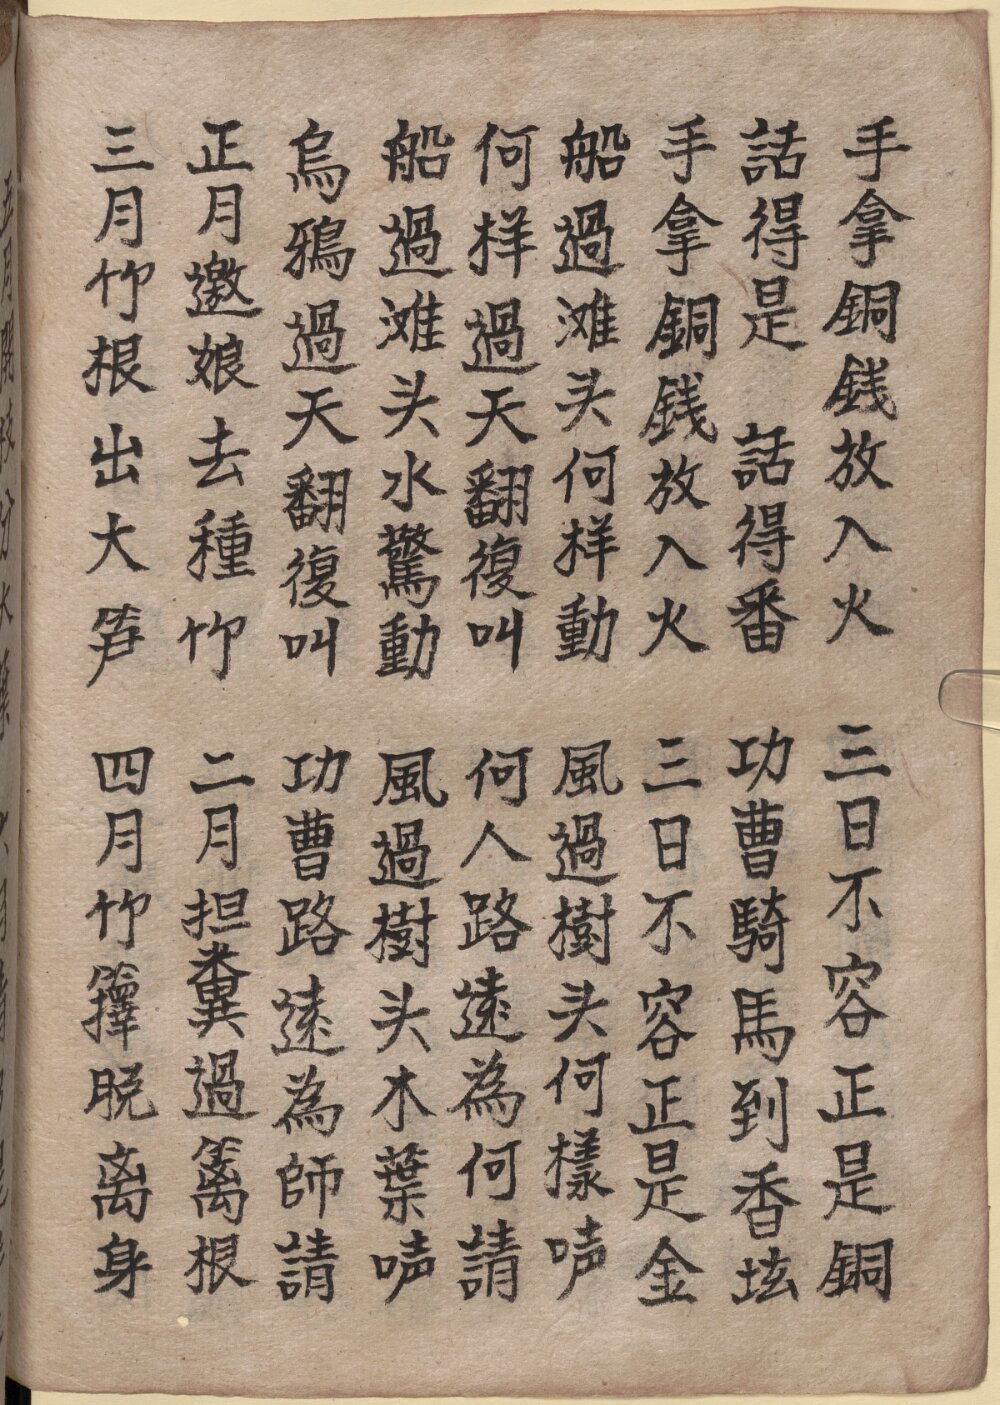 手拿銅銭放入火 三日不容正是銅
話得是 話得番 功曹騎馬到香垓
手拿銅銭放入火 三日不容正是金
船過滩头何样動 風過樹头何樣㖓
何样過天翻復叫 何人路逺為何請
船過滩头水驚動 風過樹头木葉㖓
烏鴉過天翻復叫 功曹路逺為師請
正月邀娘去種竹 二月担糞過篱根
三月竹根出大笋 四月竹籜脱离身